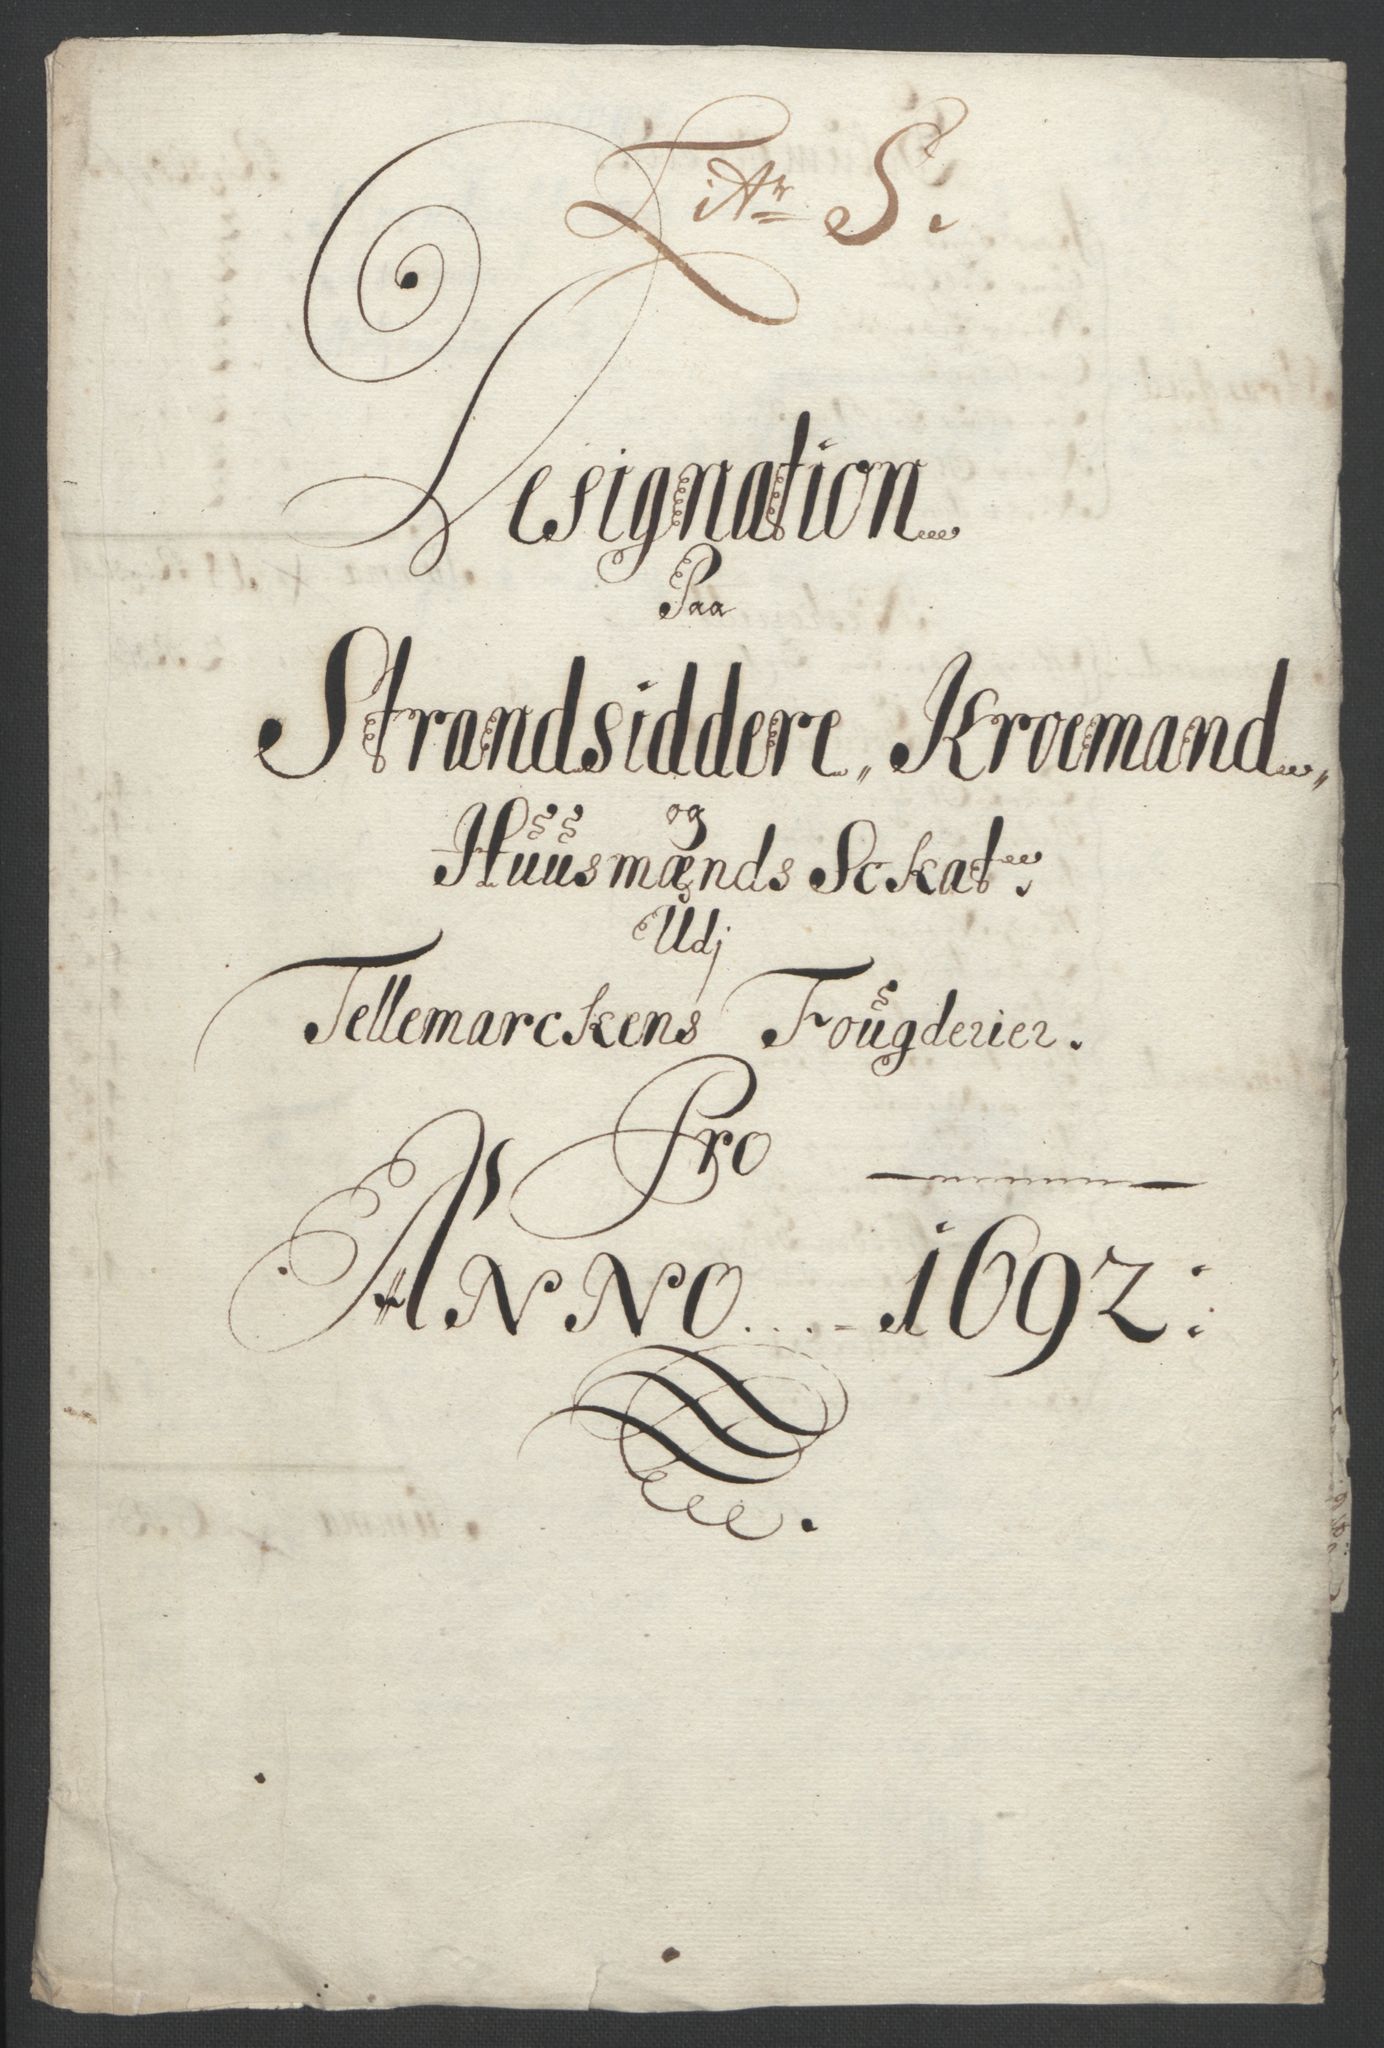 Litr S.
Designation
Paa
Strandsiddere, Kroemand,
og
Huusmænds Sckat.
Udj
Tellemarckens Fougderier.
Pro
ANNO....- 1692: